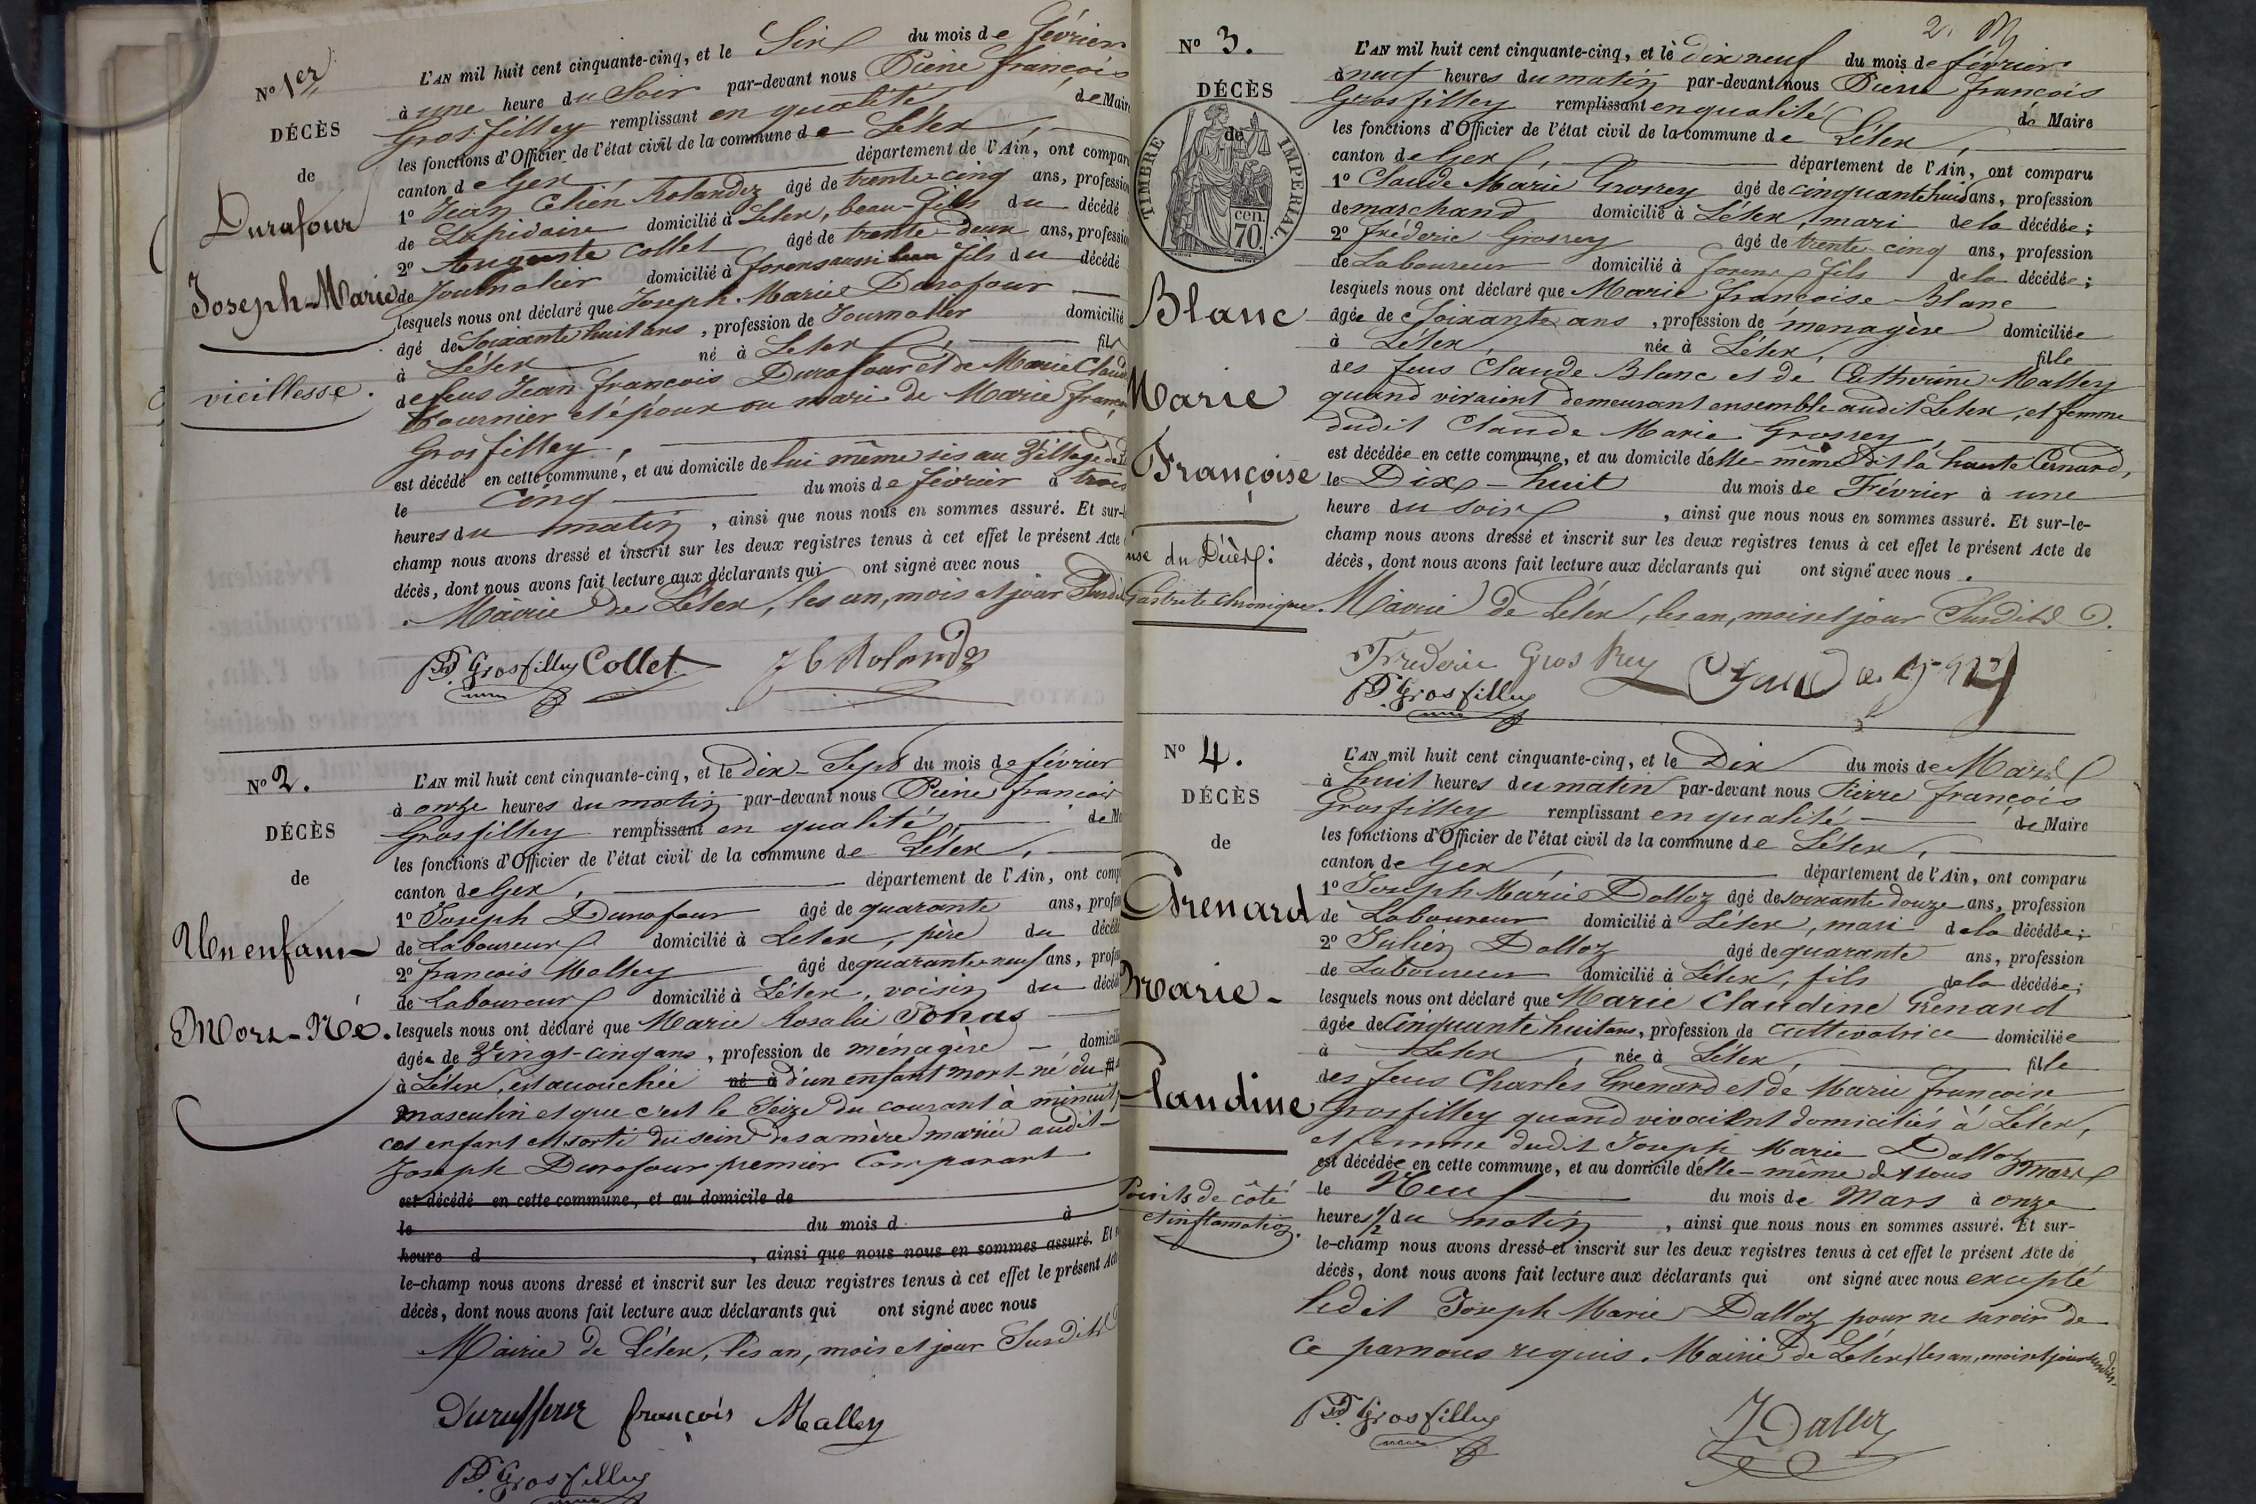 No 1er
DÉCÈS
de
Durafour
Joseph-Marie
vieillesse.
L'AN mil huit cent cinquante-cinq, et le Six du mois de février
à une heure du Soir par-devant nous Pierre françois
Grosfilley remplissant en qualité de Maire
les fonctions d'Officier de l'état civil de la commune de Lélex,
canton de Gex, département de l'Ain, ont comparu
1o Jean Célien Rolandez âgé de trente-cinq ans, profession
de Lapidaire domicilié à Lélex, beau-fils du décédé
2o Auguste Collet âgé de trente-deux ans, profession
de Journalier domicilié à forens aussi beau fils du décédé
lesquels nous ont déclaré que Joseph-Marie Durafour
âgé de Soixante huit ans, profession de Journalier domicilié
à Lélex né à Lelex, fils
de feus Jean françois Durafour et de Marie Claud
Tournier et époux ou mari de Marie franço
Grosfilley,
est décédé en cette commune, et au domicile de lui même sis au Village de
le Cinq du mois de février à trois
heures du matin, ainsi que nous nous en sommes assuré. Et sur-l
champ nous avons dressé et inscrit sur les deux registres tenus à cet effet le présent Acte
décès, dont nous avons fait lecture aux déclarants qui ont signé avec nous
. Mairie de Lélex, les an, mois et jour Susdit
Grosfilley Collet J C Rolandez
No 2.
DÉCÈS
de
Un enfant
Mort-Né.
L'AN mil huit cent cinquante-cinq, et le dix-Sept du mois de février
à onze heures du matin par-devant nous Pierre françois
Grosfilley remplissant en qualité de Ma
les fonctions d'Officier de l'état civil de la commune de Lélex,
canton de Gex, département de l'Ain, ont comp
1o Joseph Durafour âgé de quarante ans, profes
de Laboureur domicilié à Lelex, père du décédé
2o françois Malley âgé de quarante-neuf ans, profes
de Laboureur domicilié à Lélex, voisin du décédé
lesquels nous ont déclaré que Marie Rosalie Jonas
âgée de Vingt-cinq ans, profession de ménagère - domicili
à Lélex, est accouchée né à d'un enfant mort-né du
masculin et que c'est le Seize du courant à minuit,
cet enfant est sorti du sein de sa mère mariée audit
Joseph Durafour premier Comparant
est décédé en cette commune, et au domicile de
le du mois d à
heure d , ainsi que nous nous en sommes assuré. Et
le-champ nous avons dressé et inscrit sur les deux registres tenus à cet effet le présent Act
décès, dont nous avons fait lecture aux déclarants qui ont signé avec nous
Mairie de Lélex, les an, mois et jour Susdits
françois Malley
Grosfilley
2.
No 3.
DÉCÈS
de
TIMBRE IMPERIAL
70 cen.
Blanc
Marie
Françoise
use du Décès:
Gastrite chronique.
L'AN mil huit cent cinquante-cinq, et le dix neuf du mois de février
à neuf heures du matin par-devant nous Pierre françois
Grosfilley remplissant en qualité de Maire
les fonctions d'Officier de l'état civil de la commune de Lélex,
canton de Gex, département de l'Ain, ont comparu
1o Claude Marie Grosrey âgé de cinquante huit ans, profession
de marchand domicilié à Lélex, mari de la décédée;
2o fréderic Grosrey âgé de trente-cinq ans, profession
de Laboureur domicilié à forens fils de la décédée;
lesquels nous ont déclaré que Marie françoise Blanc
âgée de Soixante ans, profession de ménagère domiciliée
à Lélex, née à Lélex, fille
des feus Claude Blanc et de Catherine Malley
quand viraient demeurant ensemble audit Lelex, et femme
dudit Claude Marie Grosrey,
est décédée en cette commune, et au domicile d'elle-même dit la haute Cernard,
le Dix-huit du mois de Février à une
heure du soir, ainsi que nous nous en sommes assuré. Et sur-le-
champ nous avons dressé et inscrit sur les deux registres tenus à cet effet le présent Acte de
décès, dont nous avons fait lecture aux déclarants qui ont signé avec nous.
Mairie de Lélex, les an, mois et jour Susdits.
Fréderic Gros Rey
Grosfilley
No 4.
DÉCÈS
de
Grenard
Marie-
Claudine
Points de côté
et inflamation.
L'AN mil huit cent cinquante-cinq, et le Dix du mois de Mars
à huit heures du matin par-devant nous Pierre françois
Grosfilley remplissant en qualité de Maire
les fonctions d'Officier de l'état civil de la commune de Lélex,
canton de Gex, département de l'Ain, ont comparu
1o Joseph Marie Dalloz âgé de soixante douze ans, profession
de Laboureur domicilié à Lélex, mari de la décédée;
2o Julien Dalloz âgé de quarante ans, profession
de Laboureur domicilié à Lélex, fils de la décédée;
lesquels nous ont déclaré que Marie Claudine Grenard
âgée de Cinquante huit ans, profession de cultivatrice domiciliée
à Lelex, née à Lélex, fille
des feus Charles Grenard et de Marie françoise
Grosfilley quand vivaient domiciliés à Lélex,
et femme dudit Joseph Marie Dalloz
est décédée en cette commune, et au domicile d'elle-même
le Neuf du mois de Mars à onze
heures 1/2 du matin, ainsi que nous nous en sommes assuré. Et sur-
le-champ nous avons dressé et inscrit sur les deux registres tenus à cet effet le présent Acte de
décès, dont nous avons fait lecture aux déclarants qui ont signé avec nous excepté
ledit Joseph Marie Dalloz pour ne savoir de
ce par nous requis. Mairie de Lélex, les an, mois et jour susdits.
Grosfilley J Dalloz